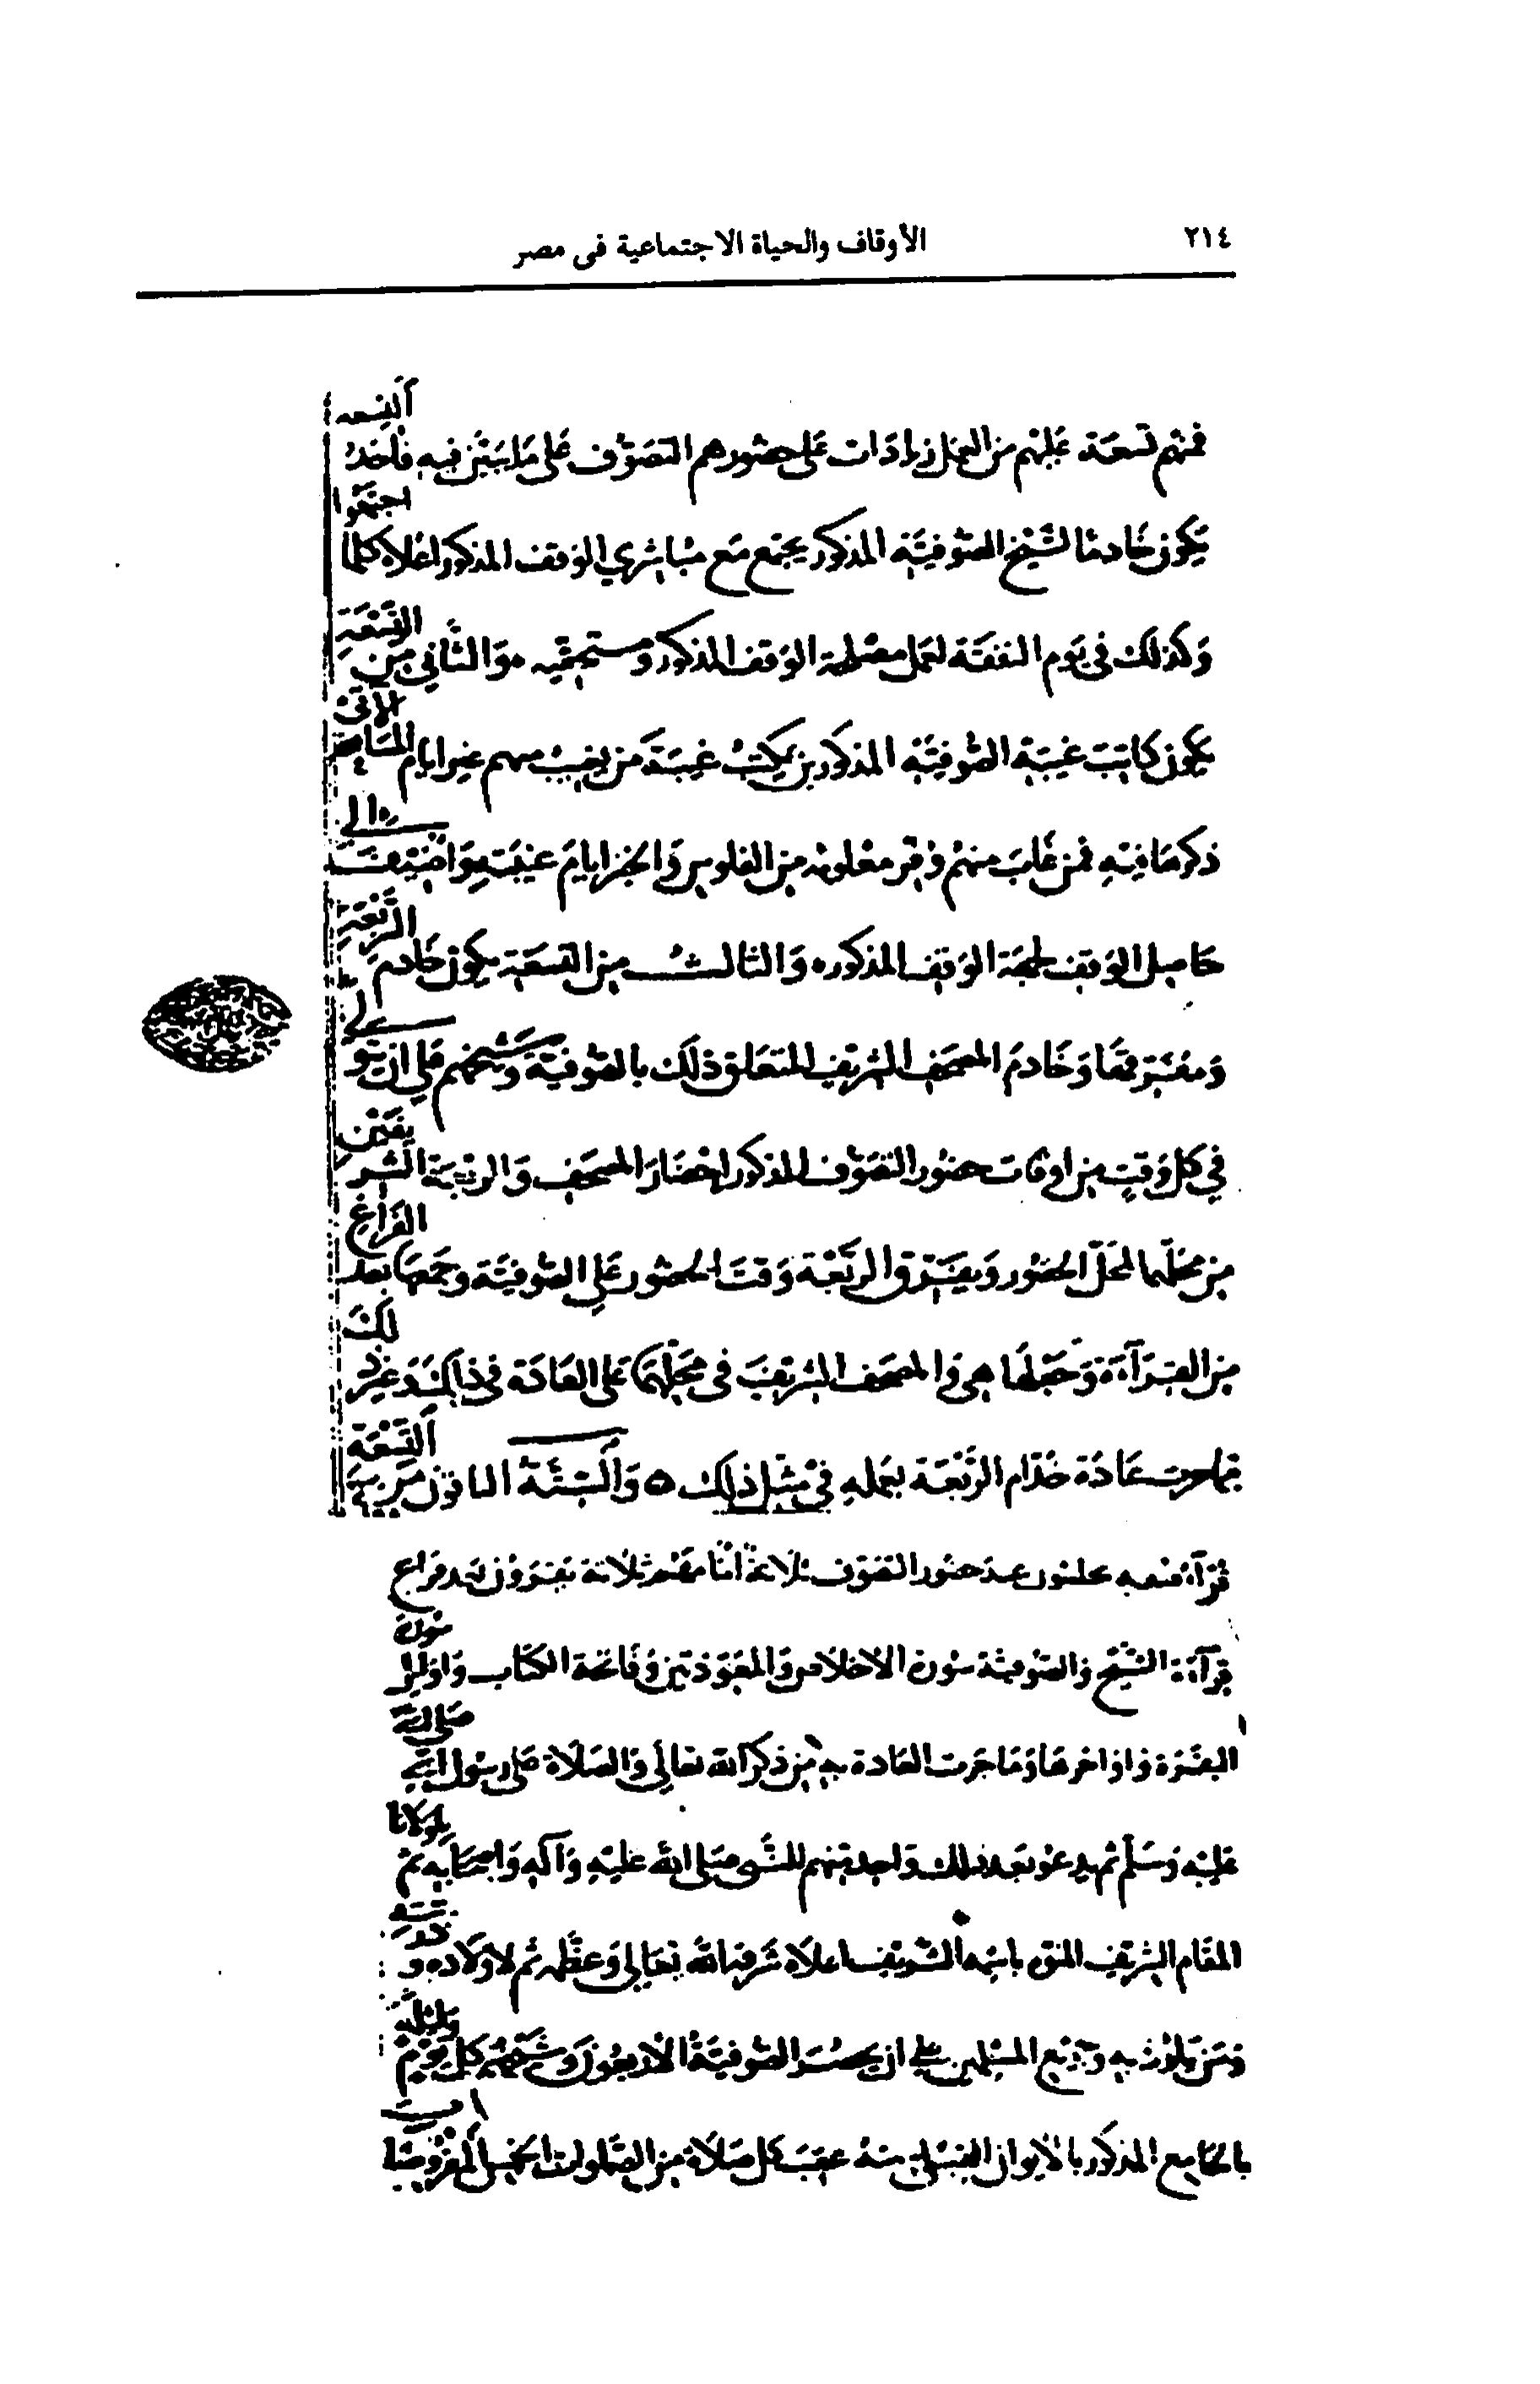 ٢١٤
الأوقاف والحياة الاجتماعية فى مصر
فمنهم تسعة عليهم من العمل زيادات على حضورهم التصوف على ما يبين فيه فأحد التسعه
يكون خادما لشيخ الصوفية المذكور يجتمع مع مباشري الوقف المذكور اعلاه كلما اجتمعوا
وكذلك في يوم النفقة لعمل مصلحة الوقف المذكور ومستحقيه والثاني من التسعة
يكون كاتب غيبة الصوفية المذكورين يكتب غيبة من يغيب منهم غير ايام المسامحة الاتي
ذكرها فيه فمن غاب منهم وفر معلومه من الفلوس والخبز ايام غيبته واضيف الى
حاصل الوقف لجهة الوقف المذكور والثالث من التسعة يكون خادم الربعة
ومفرقها وخادم المصحف الشريف المتعلق ذلك بالصوفية وشيخهم على ان يتولى
في كل وقت من اوقات حضور التصوف المذكور احضار المصحف والربعة الشريفين
من محلهما لمحل الحضور ويفرق الربعة وقت الحضور على الصوفية وجمعها بعد الفراغ
من القراءة وجعلها هي والمصحف الشريف في محلهما على العادة في ذلك
بما جرت عادة خدام الربعة بعمله في مثل ذلك ٥ والستة الباقون من التسعة
قرآء صفه يجلسون عند حضور التصوف ثلاثة امامهم ثلاثة يقرؤن بعد فراغ
قرآءة الشيخ والصوفية سورة الاخلاص والمعوذتين وفاتحة الكتاب واوايل سورة
البقرة واواخرها وما جرت العادة به من ذكر الله تعالى والصلاة على رسول الله صلى الله
عليه وسلم ثم يدعو بعد ذلك واحد منهم للنبي صلى الله عليه وآله واصحابه ثم لمولانا
المقام الشريف المنوه باسمه الشريف اعلاه شرفه الله تعالى وعظمه ثم لاولاده وذريته
ومن يلوذ به وجميع المسلمين على ان يحضر الصوفية الاربعون وشيخهم كل يوم وليلة
بالجامع المذكور بالايوان القبلي منه عقب كل صلاة من الصلوات الخمس المفروضات